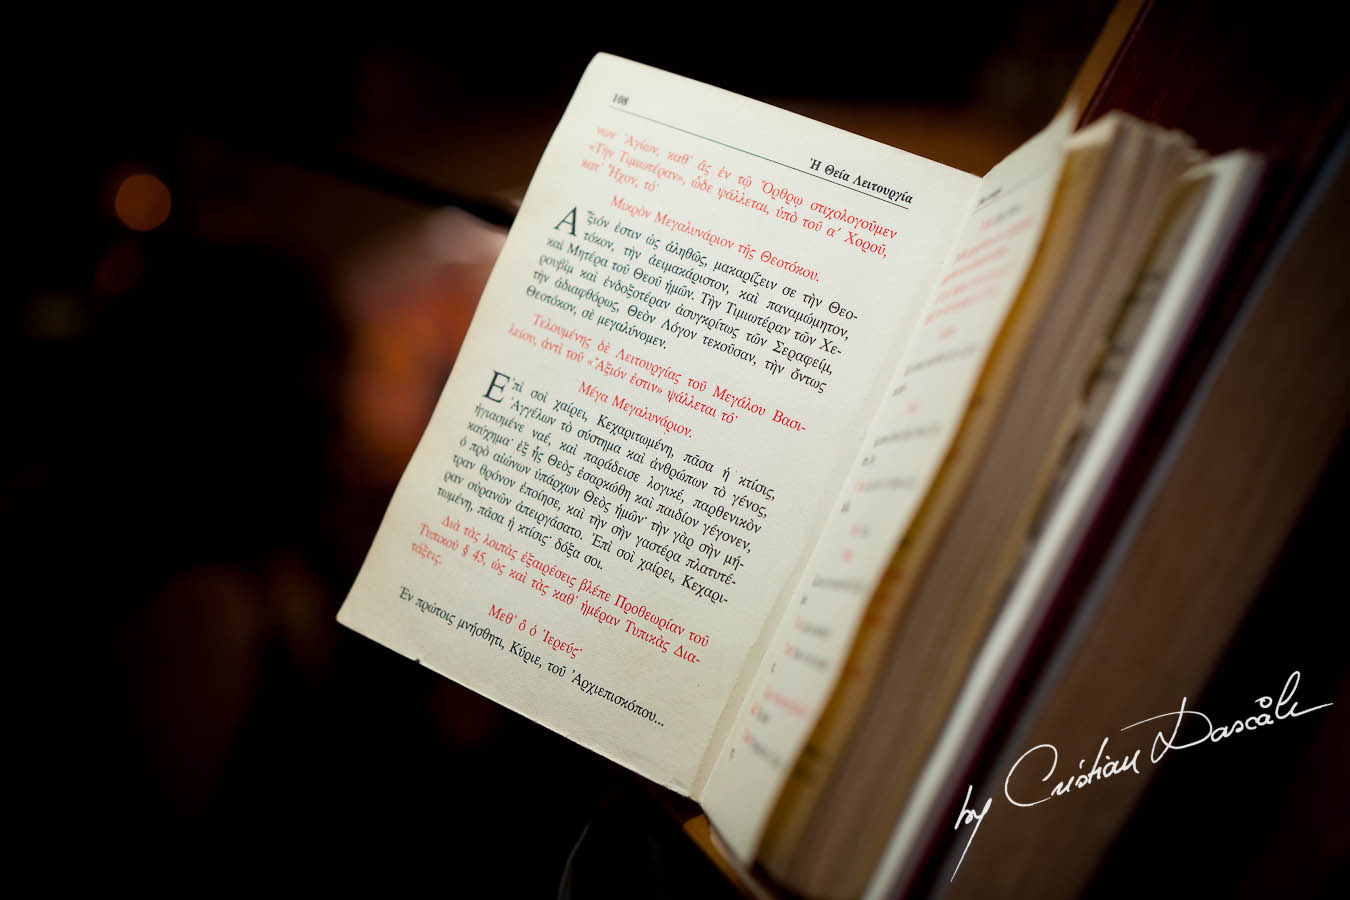 108
Ἡ Θεία Λειτουργία
νων Ἁγίων, καθ' ἃς ἐν τῷ Ὄρθρῳ στιχολογοῦμεν
«Τὴν Τιμιωτέραν», ὧδε ψάλλεται, ὑπὸ τοῦ α΄ Χοροῦ,
κατ' Ἦχον, τό·
Μικρὸν Μεγαλυνάριον τῆς Θεοτόκου.
Ἄξιόν ἐστιν ὡς ἀληθῶς, μακαρίζειν σε τὴν Θεο-
τόκον, τὴν ἀειμακάριστον, καὶ παναμώμητον,
καὶ Μητέρα τοῦ Θεοῦ ἡμῶν. Τὴν Τιμιωτέραν τῶν Χε-
ρουβὶμ καὶ ἐνδοξοτέραν ἀσυγκρίτως τῶν Σεραφείμ,
τὴν ἀδιαφθόρως, Θεὸν Λόγον τεκοῦσαν, τὴν ὄντως
Θεοτόκον, σὲ μεγαλύνομεν.
Τελουμένης δὲ Λειτουργίας τοῦ Μεγάλου Βασι-
λείου, ἀντὶ τοῦ «Ἄξιόν ἐστιν» ψάλλεται τό·
Μέγα Μεγαλυνάριον.
Ἐπὶ σοὶ χαίρει, Κεχαριτωμένη, πᾶσα ἡ κτίσις,
Ἀγγέλων τὸ σύστημα καὶ ἀνθρώπων τὸ γένος,
ἡγιασμένε ναέ, καὶ παράδεισε λογικέ, παρθενικὸν
καύχημα· ἐξ ἧς Θεὸς ἐσαρκώθη καὶ παιδίον γέγονεν,
ὁ πρὸ αἰώνων ὑπάρχων Θεὸς ἡμῶν· τὴν γὰρ σὴν μή-
τραν θρόνον ἐποίησε, καὶ τὴν σὴν γαστέρα πλατυτέ-
ραν οὐρανῶν ἀπειργάσατο. Ἐπὶ σοὶ χαίρει, Κεχαρι-
τωμένη, πᾶσα ἡ κτίσις· δόξα σοι.
Διὰ τὰς λοιπὰς ἐξαιρέσεις βλέπε Προθεωρίαν τοῦ
Τυπικοῦ § 45, ὡς καὶ τὰς καθ' ἡμέραν Τυπικὰς Δια-
τάξεις.
Μεθ' ὃ ὁ Ἱερεύς·
Ἐν πρώτοις μνήσθητι, Κύριε, τοῦ Ἀρχιεπισκόπου...
by Cristian Dascălu